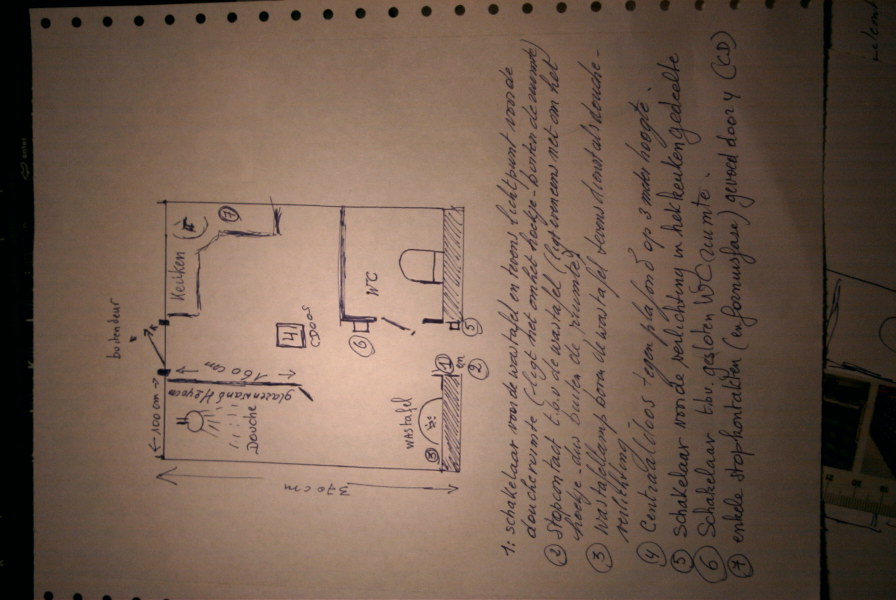 buitendeur
← 100 cm →
Keuken
7
160 cm
glazenwand
Douche
4
CDoos
WC
6
5
1
en
2
wastafel
3
370 cm
1: schakelaar voor de wastafel en tevens lichtpunt voor de
doucheruimte (ligt net om het hoekje - buiten de ruimte)
2 Stopcontact t.b.v. de wastafel (ligt eveneens net om het
hoekje dus buiten de ruimte)
3 wastafellamp boven de wastafel tevens dienst als douche-
verlichting
4 Centraaldoos tegen plafond op 3 meter hoogte.
5 Schakelaar voor de verlichting in het keuken gedeelte
6 Schakelaar t.b.v. gesloten WC ruimte.
7 enkele stophontakten (en fornuisfase) gevoed door 4 (CD)